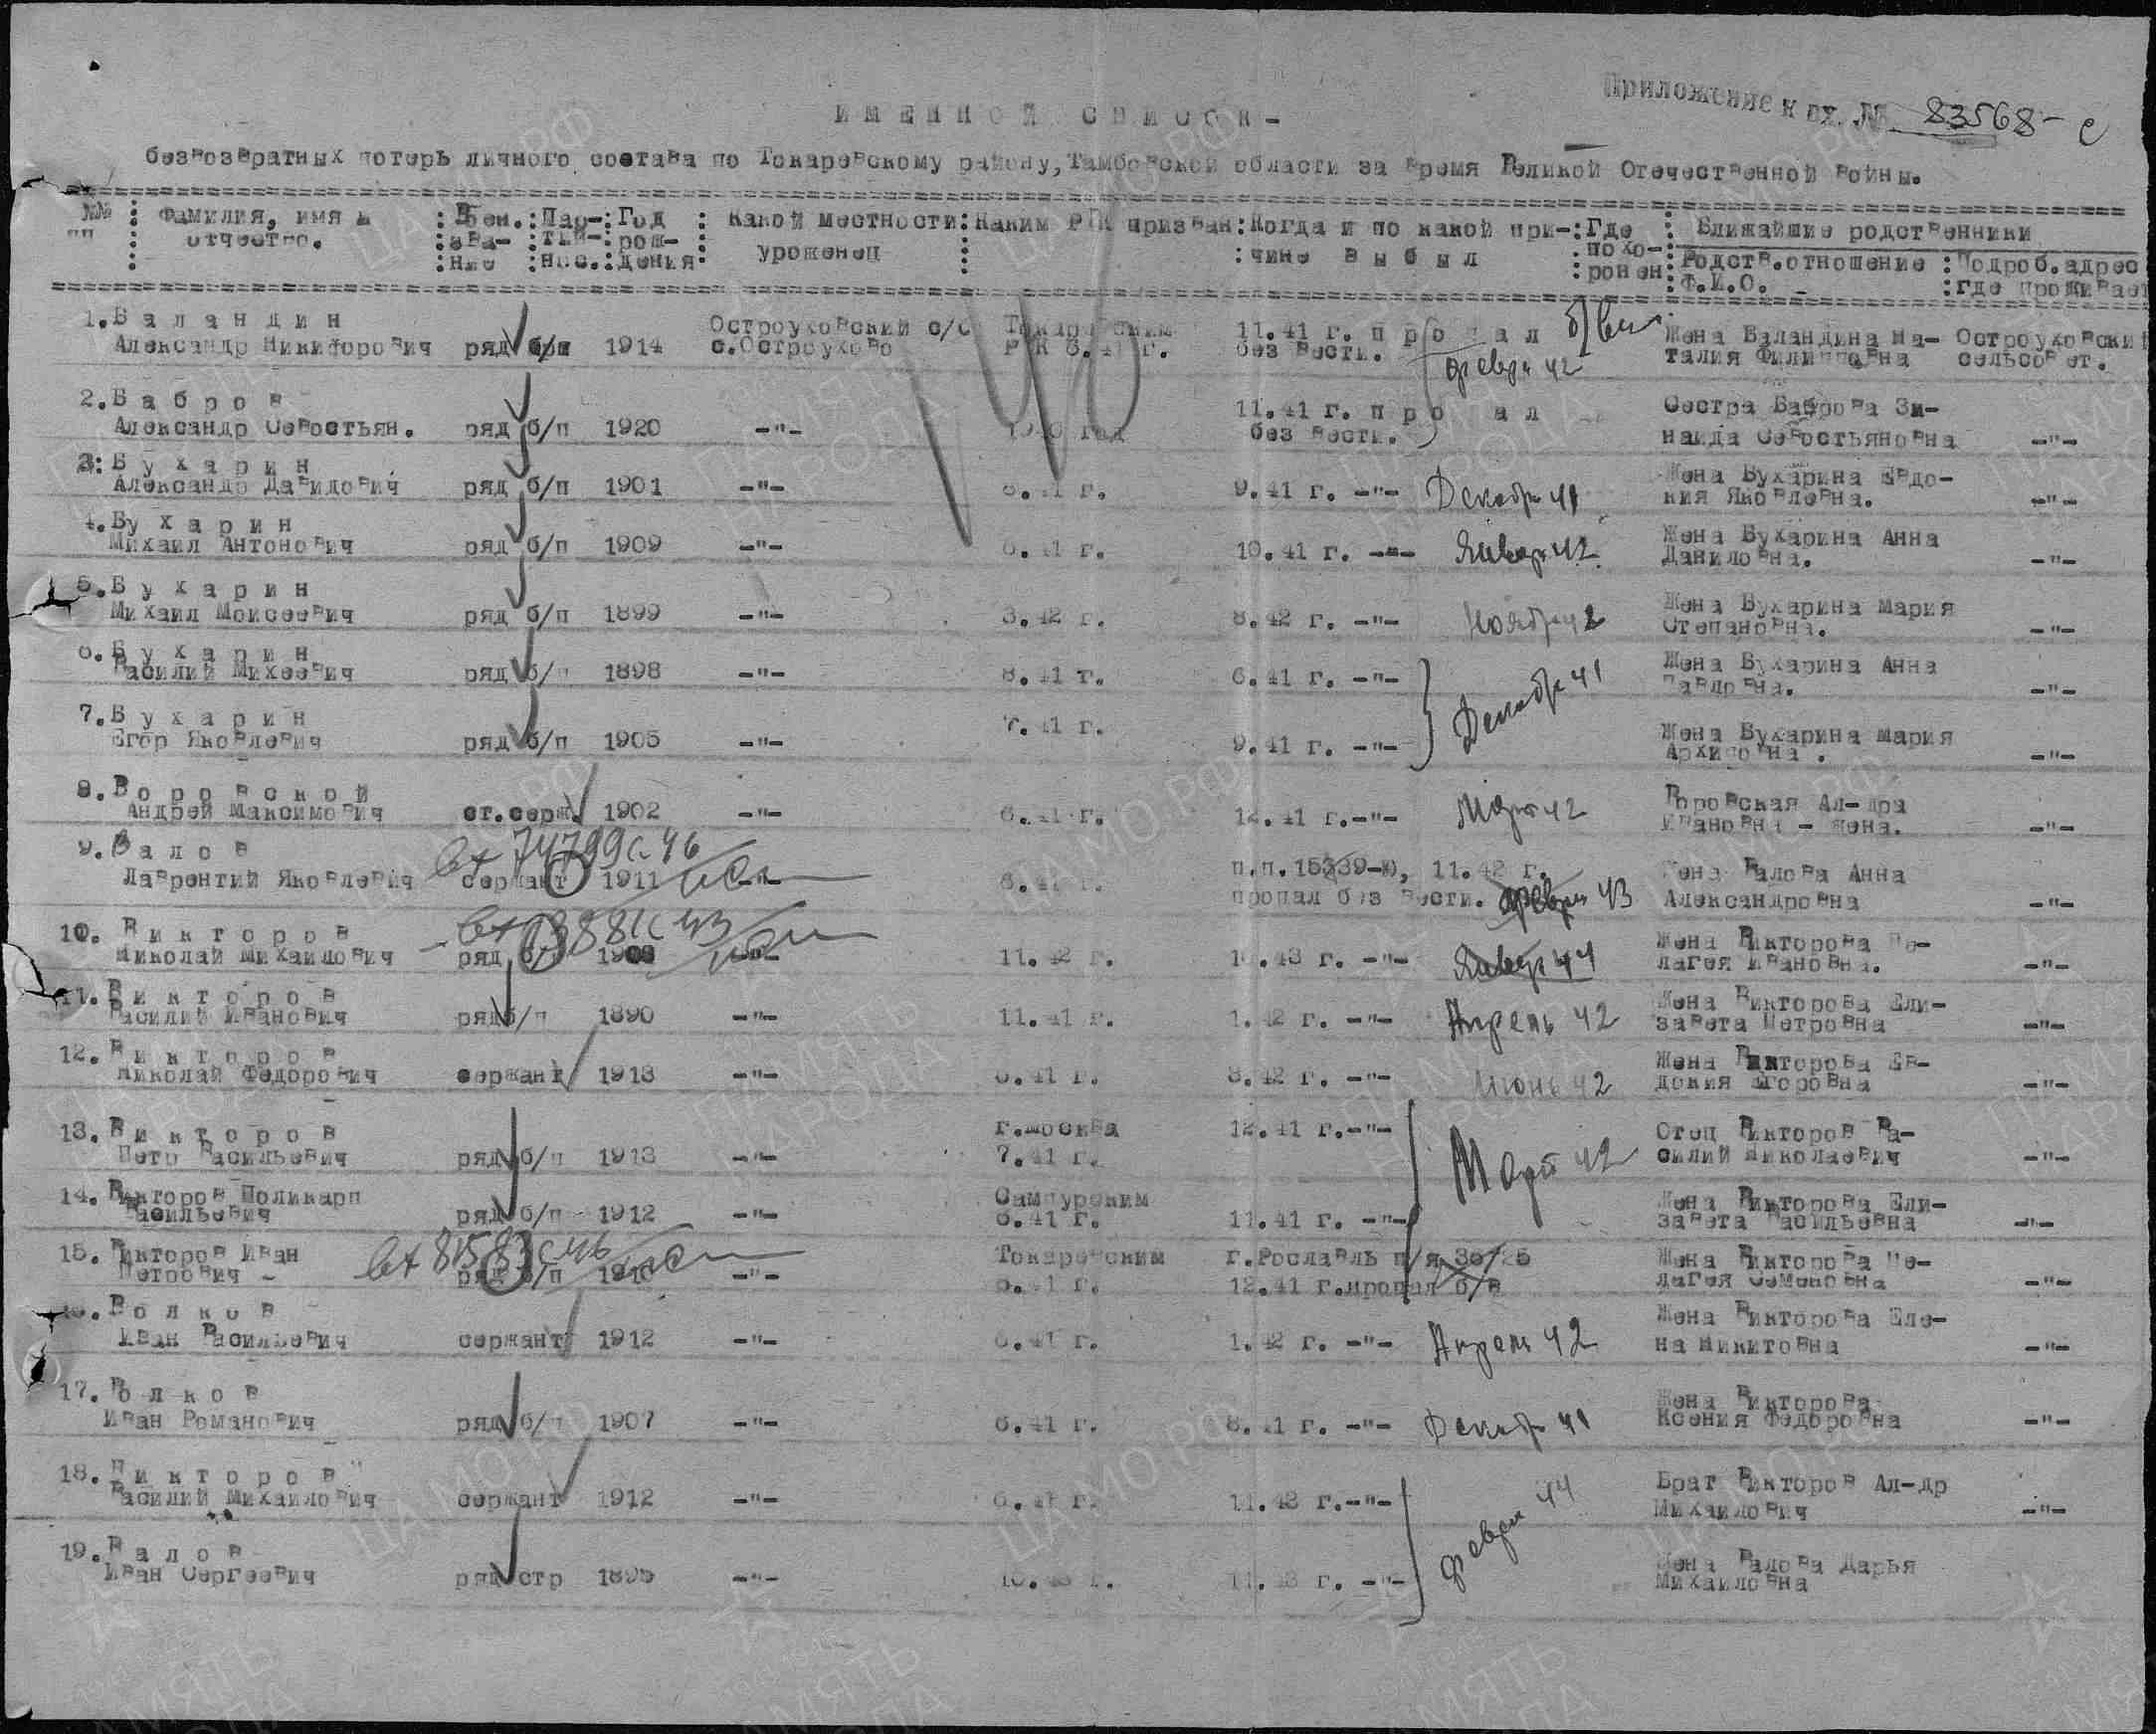 Приложение к вх. № 83568-с
ИМЕННОЙ СПИСОК-
безвозвратных потерь личного состава по Токаревскому району, Тамбовской области за время Великой Отечественной войны.
№№ пп : Фамилия, имя и отчество. : Воен. зва-ние : Пар-тий-нос. : Год рож-дения : Какой местности уроженец : Каким РВК призван : Когда и по какой при-чине выбыл : Где похо-ронен : Ближайшие родственники
Родств.отношение Ф.И.О. : Подроб.адрес где проживает
1. Баландин Остроуховский с/с Токаревским 11.41 г. пропал б/вест Жена Баландина На- Остроуховский
Александр Никифорович ряд б/п 1914 с.Остроухово РВК 6.41 г. без вести. феврал 42 талия Филипповна сельсовет.
2. Бабров 11.41 г. пропал Сестра Баброва Зи-
Александр Севостьян. ряд б/п 1920 -"- год без вести. наида Севостьяновна -"-
3: Бухарин Жена Бухарина Евдо-
Александр Давидович ряд б/п 1901 -"- 9.41 г. -"- Декабрь 41 кия Яковлевна. -"-
4. Бухарин Жена Бухарина Анна
Михаил Антонович ряд б/п 1909 -"- 6.41 г. 10.41 г. -"- Январь 42 Даниловна. -"-
5. Бухарин Жена Бухарина Мария
Михаил Моисеевич ряд б/п 1899 -"- 3.42 г. 8.42 г. -"- Ноябрь 42 Степановна. -"-
6. Бухарин Жена Бухарина Анна
Василий Михеевич ряд б/п 1898 -"- 8.41 г. 6.41 г. -"- Декабрь 41 Павловна. -"-
7. Бухарин 7.41 г. Жена Бухарина Мария
Егор Яковлевич ряд б/п 1905 -"- 9.41 г. -"- Архиповна . -"-
8. Воровской Воровская Ал-дра
Андрей Максимович ст.серж. 1902 -"- 6.41 г. 12.41 г.-"- Март 42 Ивановна - жена. -"-
9. Валов вх 74799с 46 п.п. 15339-Ю, 11.42 г. Жена Валова Анна
Лаврентий Яковлевич сержант 1911 -"- 6.41 г. пропал без вести. феврал 43 Александровна -"-
10. Викторов Жена Викторова Пе-
Николай Михайлович ряд б/п -"- 11.42 г. 43 г. -"- Январь 44 лагея Ивановна. -"-
11. Викторов Жена Викторова Ели-
Василий Иванович ряд б/п 1890 -"- 11.41 г. 1.42 г. -"- Апрель 42 завета Петровна -"-
12. Викторов Жена Викторова Ев-
Николай Федорович сержант 1913 -"- 6.41 г. 3.42 г. -"- Июнь 42 докия Егоровна -"-
13. Викторов г.Москва 12.41 г.-"- Отец Викторов Ва-
Петр Васильевич ряд б/п 1913 -"- 7.41 г. Март 42 силий Николаевич -"-
14. Викторов Поликарп Сампурским Жена Викторова Ели-
Васильевич ряд б/п 1912 -"- 6.41 г. 11.41 г. -"- завета Васильевна -"-
15. Викторов Иван вх 81583с 46 Токаревским г.Рославль п/я 30/25 Жена Викторова Пе-
Петрович - ряд б/п -"- 6.41 г. 12.41 г.пропал б/в лагея Семеновна -"-
16. Волков Жена Викторова Еле-
Иван Васильевич сержант 1912 -"- 6.41 г. 1.42 г. -"- Апрель 42 на Никитовна -"-
17. Волков Жена Викторова
Иван Романович ряд б/п 1907 -"- 6.41 г. 8.41 г. -"- Декабр 41 Ксения Федоровна -"-
18. Викторов Брат Викторов Ал-др
Василий Михайлович сержант 1912 -"- 6.41 г. 11.43 г.-"- феврал 44 Михайлович -"-
19. Валов Жена Валова Дарья
Иван Сергеевич ряд стр 1895 -"- 11.43 г. -"- Михайловна